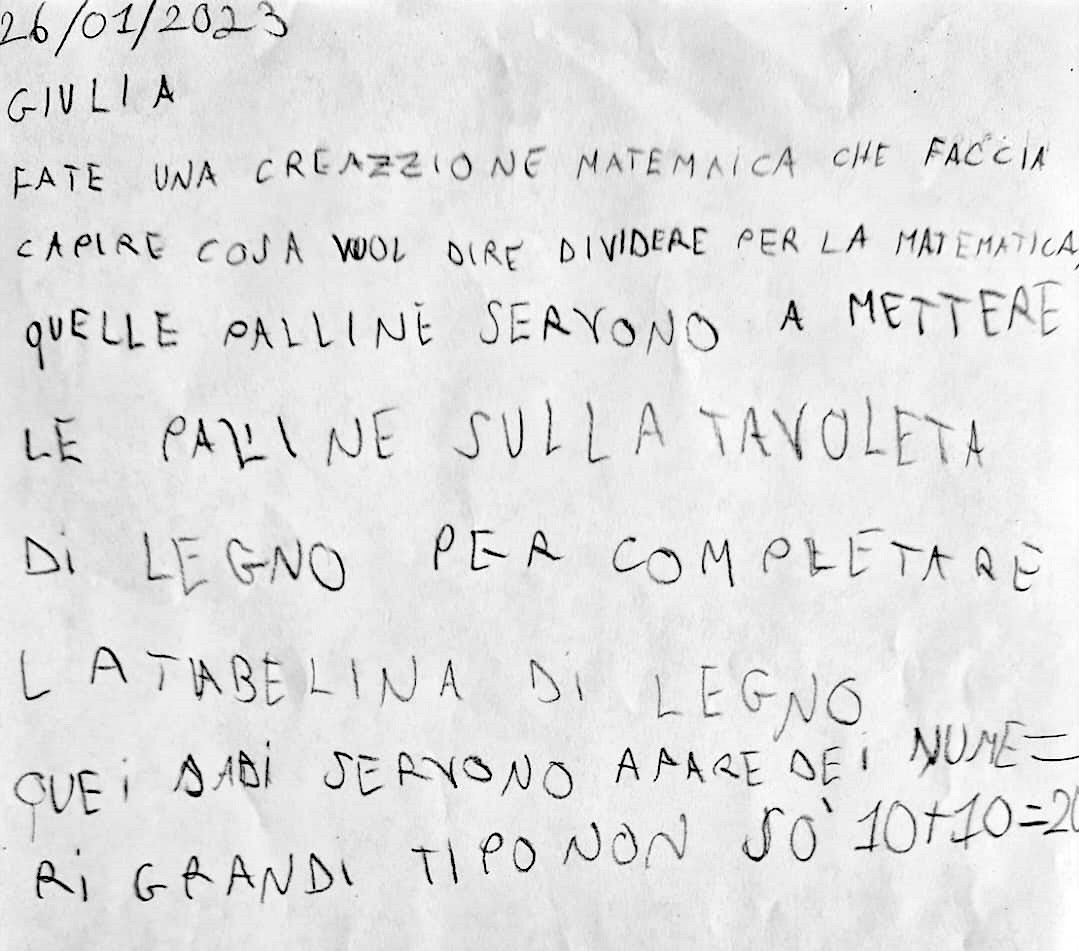 26/01/2023
GIULIA
FATE UNA CREAZZIONE MATEMAICA CHE FACCIA
CAPIRE COSA VUOL DIRE DIVIDERE PER LA MATEMATICA,
QUELLE PALLINE SERVONO A METTERE
LE PALLINE SULLA TAVOLETA
Di LEGNO PER COMPLETARE
LA TABELINA Di LEGNO
QUEi DADi SERVONO A FARE DEi NUME=
Ri GRANDI TIPO NON SO' 10+10=20